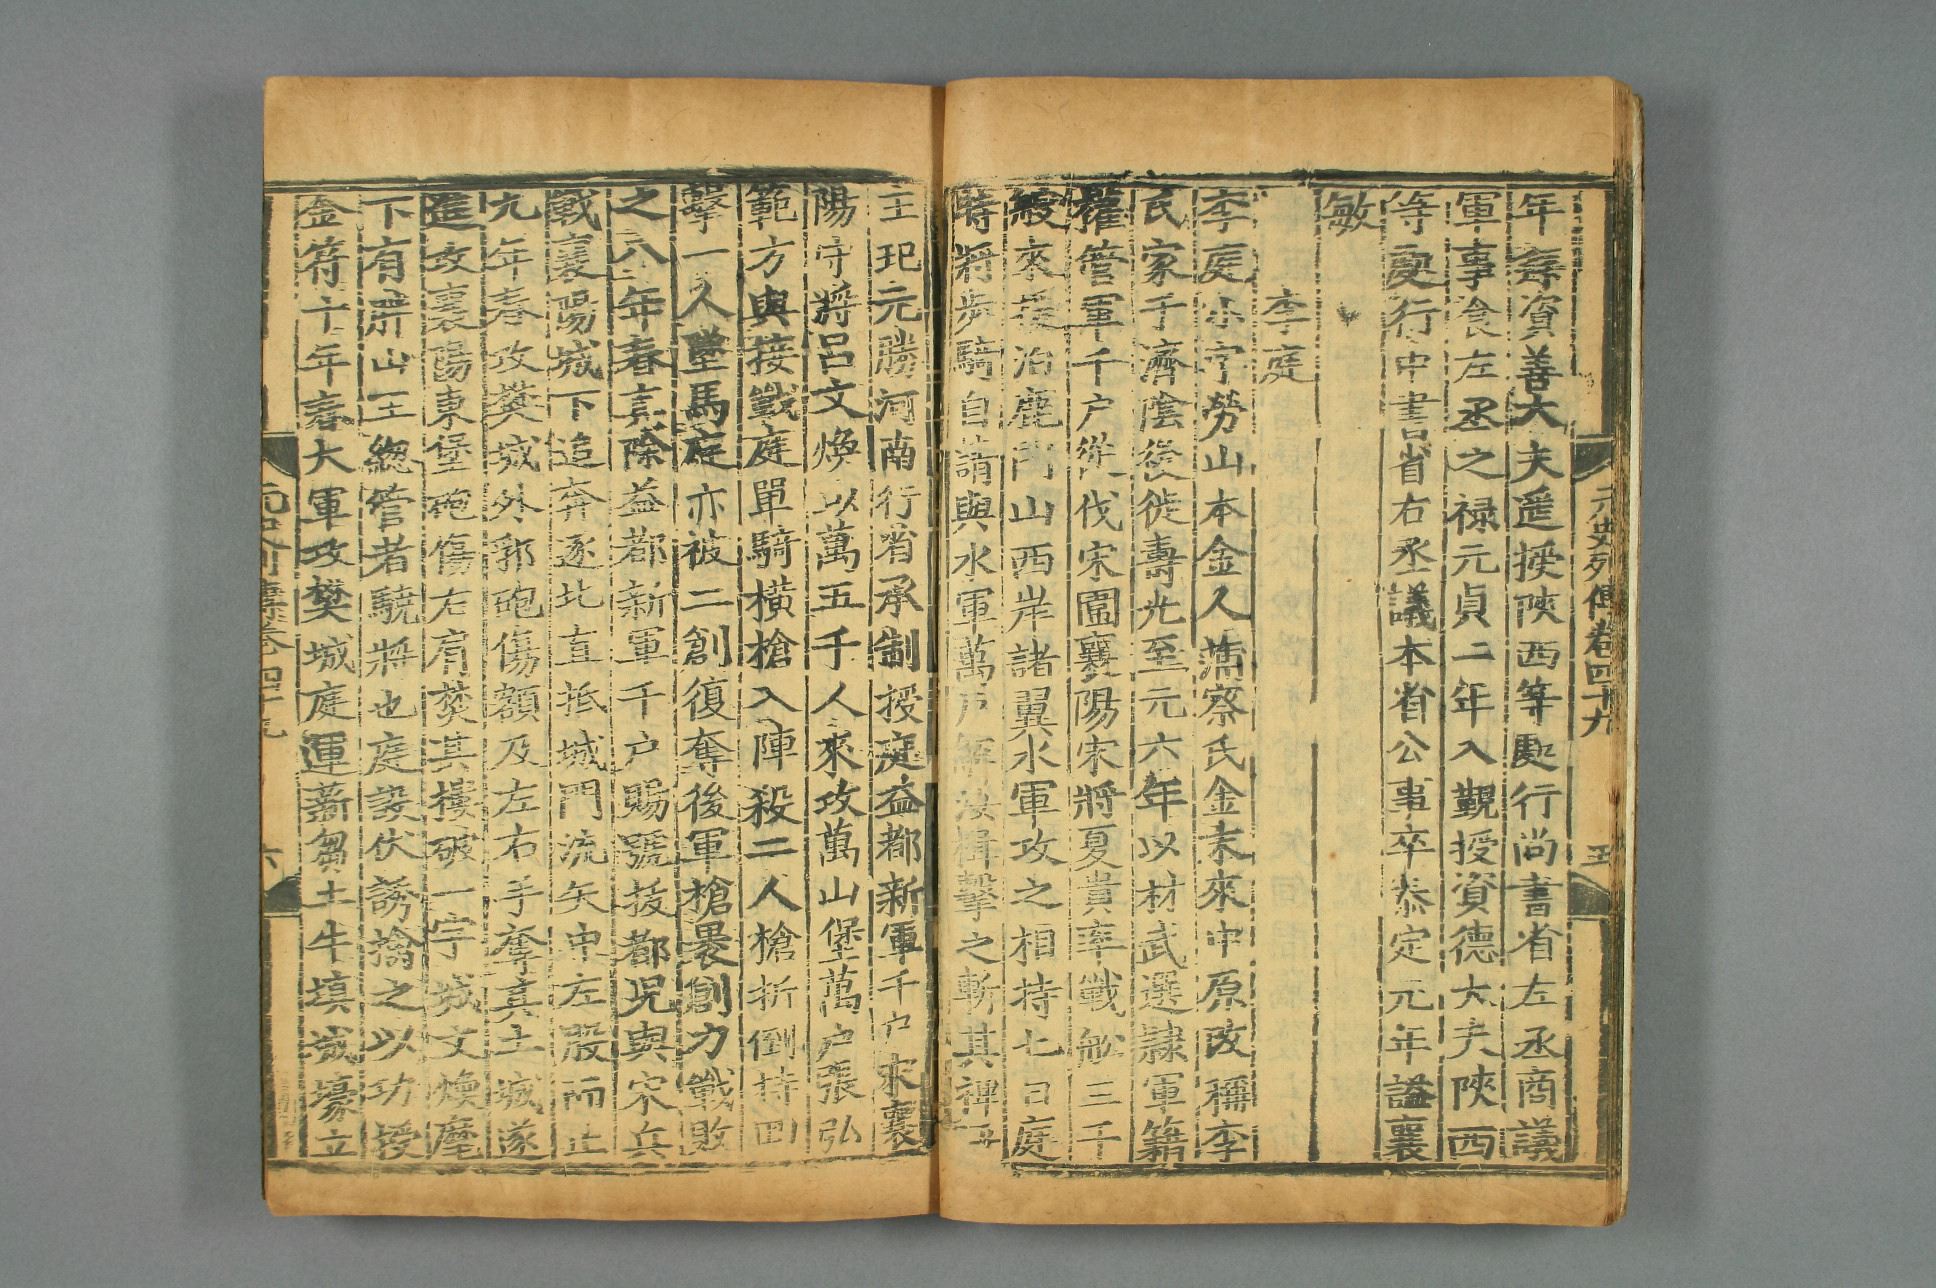 元史列傳卷四十九
五
年尋資善大夫遥授陝西等處行尚書省左丞商議
軍事食左丞之禄元貞二年入覲授資德大夫陝西
等處行中書省右丞議本省公事卒泰定元年謚襄
敏
李庭
李庭小字勞山本金人蒲察氏金末來中原改稱李
氏家于濟陰後徙壽光至元六年以材武選隷軍籍
權管軍千户從伐宋圍襄陽宋將夏貴率戰船三千
艘來援泊鹿門山西岸諸翼水軍攻之相持七日庭
時將步騎自請與水軍萬戶解汝楫擊之斬其裨
王玘元勝河南行省承制授庭益都新軍千户宋襄
陽守將呂文煥以萬五千人來攻萬山堡萬户張弘
範方與接戰庭單騎橫槍入陣殺二人槍折倒持回
擊一人墜馬庭亦被二創復奪後軍槍裹創力戰敗
之八年春真除益都新軍千户賜號拔都児與宋兵
戰襄陽城下追奔逐北直抵城門流矢中左股而止
九年春攻樊城外郛砲傷額及左右手奪其土城遂
進攻襄陽東堡砲傷右肩焚其樓破一字城文煥麾
下有胖山王總管者驍將也庭設伏誘擒之以功授
金符十年春大軍攻樊城庭運薪芻土牛填城壕立
卷四十九
六